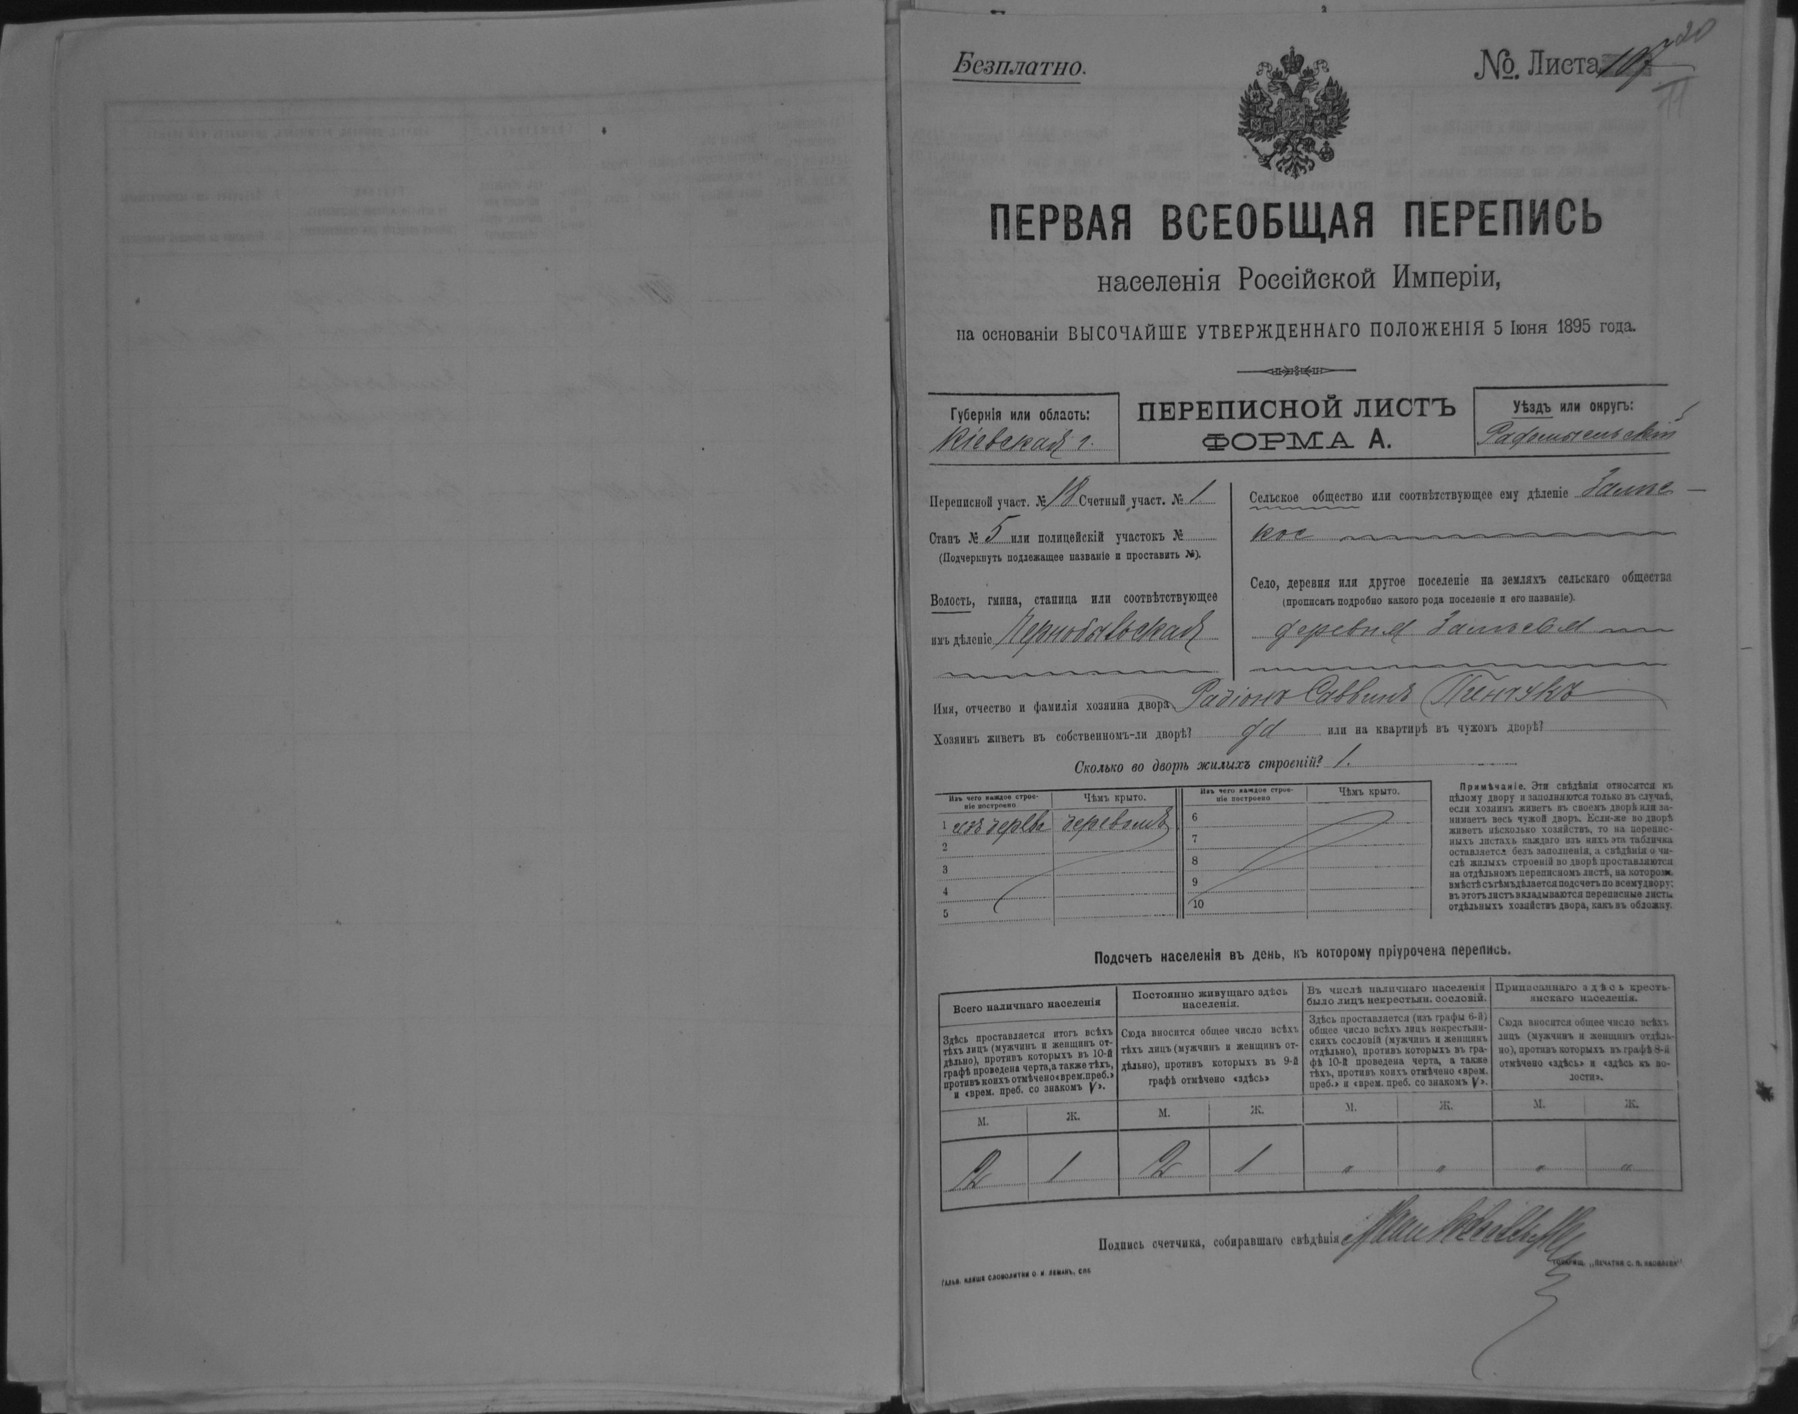 Безплатно.
№ Листа 107
20
ПЕРВАЯ ВСЕОБЩАЯ ПЕРЕПИСЬ
населенія Россійской Имперіи,
на основаніи ВЫСОЧАЙШЕ УТВЕРЖДЕННАГО ПОЛОЖЕНІЯ 5 Іюня 1895 года.
Губернія или область:
Кіевская г.
ПЕРЕПИСНОЙ ЛИСТЪ
ФОРМА А.
Уѣздъ или округъ:
Радомысльскій
Переписной участ. № 18 Счетный участ. № 1
Станъ № 5 или полицейскій участокъ №
(Подчеркнуть подлежащее названіе и проставить №).
Волость, гмина, станица или соотвѣтствующее
имъ дѣленіе Чернобыльская
Сельское общество или соотвѣтствующее ему дѣленіе Залѣс-
кое
Село, деревня или другое поселеніе на земляхъ сельскаго общества
(прописать подробно какого рода поселеніе и его названіе).
деревня Залѣсья
Имя, отчество и фамилія хозяина двора Радіонъ Саввинъ Пинчукъ
Хозяинъ живетъ въ собственномъ-ли дворѣ? да или на квартирѣ въ чужомъ дворѣ?
Сколько во дворѣ жилыхъ строеній? 1.
Изъ чего каждое строе-
ніе построено
Чѣмъ крыто.
1 изъ дерева деревомъ
2
3
4
5
Изъ чего каждое строе-
ніе построено
Чѣмъ крыто.
6
7
8
9
10
Примѣчаніе. Эти свѣдѣнія относятся къ
цѣлому двору и заполняются только въ случаѣ,
если хозяинъ живетъ въ своемъ дворѣ или за-
нимаетъ весь чужой дворъ. Если-же во дворѣ
живетъ нѣсколько хозяйствъ, то на перепис-
ныхъ листахъ каждаго изъ нихъ эта табличка
оставляется безъ заполненія, а свѣдѣнія о чи-
слѣ жилыхъ строеній во дворѣ проставляются
на отдѣльномъ переписномъ листѣ, на которомъ
вмѣстѣ съ тѣмъ дѣлается подсчетъ по всему двору;
въ этотъ листъ вкладываются переписные листы
отдѣльныхъ хозяйствъ двора, какъ въ обложку.
Подсчетъ населенія въ день, къ которому пріурочена перепись.
Всего наличнаго населенія
Здѣсь проставляется итогъ всѣхъ
тѣхъ лицъ (мужчинъ и женщинъ от-
дѣльно), противъ которыхъ въ 10-й
графѣ проведена черта, а также тѣхъ,
противъ коихъ отмѣчено «врем. преб.»
и «врем. преб. со знакомъ V».
Постоянно живущаго здѣсь
населенія.
Сюда вносится общее число всѣхъ
тѣхъ лицъ (мужчинъ и женщинъ от-
дѣльно), противъ которыхъ въ 9-й
графѣ отмѣчено «здѣсь»
Въ числѣ наличнаго населенія
было лицъ некрестьян. сословій.
Здѣсь проставляется (изъ графы 6-й)
общее число всѣхъ лицъ некрестьян-
скихъ сословій (мужчинъ и женщинъ
отдѣльно), противъ которыхъ въ гра-
фѣ 10-й проведена черта, а также
тѣхъ, противъ коихъ отмѣчено «врем.
преб.» и «врем. преб. со знакомъ V».
Приписаннаго здѣсь кресть-
янскаго населенія.
Сюда вносится общее число всѣхъ
лицъ (мужчинъ и женщинъ отдѣль-
но), противъ которыхъ въ графѣ 8-й
отмѣчено «здѣсь» и «здѣсь въ во-
лости».
М. Ж. М. Ж. М. Ж. М. Ж.
2 1 2 1 " " " "
Подпись счетчика, собиравшаго свѣдѣнія
ГАЛЬВ. КЛИШЕ СЛОВОЛИТНИ О. И. ЛЕМАНЪ, СПБ.
ТОВАРИЩ. „ПЕЧАТНЯ С. П. ЯКОВЛЕВА"